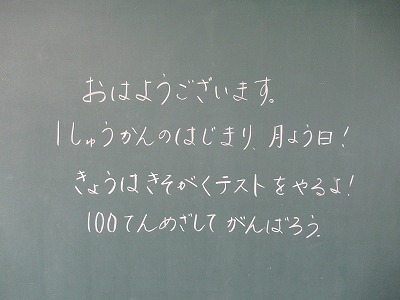 おはようございます。
1しゅうかんのはじまり、月よう日！
きょうはきそがくテストをやるよ！
100てんめざしてがんばろう。